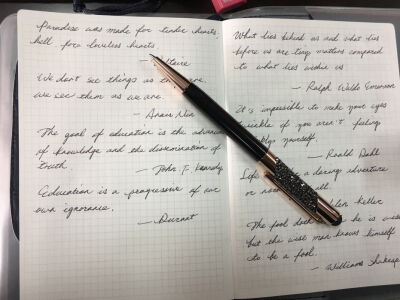 Paradise was made for tender hearts,
hell, for loveless hearts.
— Voltaire
We don't see things as they are,
we see them as we are.
— Anais Nin
The goal of education is the advance
of knowledge and the dissemination of
truth.
— John F. Kennedy
Education is a progressive of our
own ignorance.
— Durant
What lies behind us and what lies
before us are tiny matters compared
to what lies within us
— Ralph Waldo Emerson
It is impossible to make your eyes
twinkle if you aren't feeling
yourself.
— Roald Dahl
Life a daring adventure
or all.
Keller
The fool doth he is wise
but the wise man knows himself
to be a fool.
— Williams Shakesp